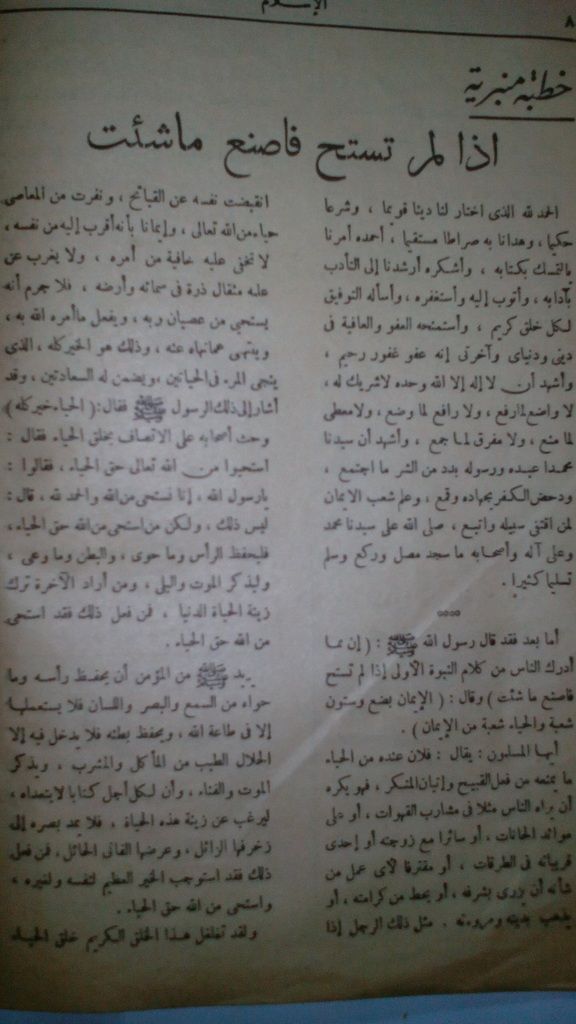 الإسلام
٨
خطبة منبرية
اذا لم تستح فاصنع ماشئت
الحمد لله الذى اختار لنا دينا قويما ، وشرعا
حكيما ، وهدانا به صراطا مستقيما ، أحمده أمرنا
بالتمسك بكتابه ، وأشكره أرشدنا إلى التأدب
بآدابه ، وأتوب إليه وأستغفره ، وأسأله التوفيق
لكل خلق كريم ، وأستمنحه العفو والعافية فى
دينى ودنياى وآخرتى إنه عفو غفور رحيم ،
وأشهد أن لا إله إلا الله وحده لاشريك له ،
لا واضع لمارفع ، ولا رافع لما وضع ، ولامعطى
لما منع ، ولا مفرق لما جمع ، وأشهد أن سيدنا
محمدا عبده ورسوله بدد من الشر ما اجتمع ،
ودحض الكفر بجهاده وقمع ، وعلم شعب الايمان
لمن اقتفى سبيله واتبع ، صلى الله على سيدنا محمد
وعلى آله وأصحابه ما سجد مصل وركع وسلم
تسليما كثيرا .
أما بعد فقد قال رسول الله ﷺ : ( إن مما
أدرك الناس من كلام النبوة الأولى إذا لم تستح
فاصنع ما شئت ) وقال : ( الإيمان بضع وستون
شعبة والحياء شعبة من الإيمان ) .
أيها المسلمون : يقال : فلان عنده من الحياء
ما يمنعه من فعل القبيح وإتيان المنكر ، فهو يكره
أن يراه الناس مثلا فى مشارب القهوات ، أو على
موائد الحانات ، أو سائرا مع زوجته أو إحدى
قريباته فى الطرقات ، أو مقترفا لأى عمل من
شأنه أن يزرى بشرفه ، أو يحط من كرامته ، أو
يذهب بدينه ومروءته . مثل ذلك الرجل إذا
انقبضت نفسه عن القبائح ، ونفرت من المعاصى
حياء من الله تعالى ، وإيمانا بأنه أقرب إليه من نفسه ،
لا تخفى عليه خافية من أمره ، ولا يغرب عن
علمه مثقال ذرة فى سمائه وأرضه ، فلا جرم أنه
يستحى من عصيان ربه ، ويفعل ماأمره الله به ،
وينتهى عمانهاه عنه ، وذلك هو الخيركله ، الذى
ينجى المرء فى الحياتين ، ويضمن له السعادتين ، وقد
أشار إلى ذلك الرسول ﷺ فقال : ( الحياء خيركله )
وحث أصحابه على الاتصاف بخلق الحياء فقال :
استحيوا من الله تعالى حق الحياء ، فقالوا :
يارسول الله ، إنا نستحى من الله والحمد لله ، قال :
ليس ذلك ، ولكن من استحى من الله حق الحياء ،
فليحفظ الرأس وما حوى ، والبطن وما وعى ،
وليذكر الموت والبلى ، ومن أراد الآخرة ترك
زينة الحياة الدنيا ، فمن فعل ذلك فقد استحى
من الله حق الحياء .
يريد ﷺ من المؤمن أن يحفظ رأسه وما
حواه من السمع والبصر واللسان فلا يستعملها
إلا فى طاعة الله ، ويحفظ بطنه فلا يدخل فيه إلا
الحلال الطيب من المأكل والمشرب ، ويذكر
الموت والفناء ، وأن لكل أجل كتابا لايتعداه ،
ليرغب عن زينة هذه الحياة ، فلا يمد بصره إلى
زخرفها الزائل ، وعرضها الفانى الحائل ، فمن فعل
ذلك فقد استوجب الخير العظيم لنفسه ولغيره ،
واستحى من الله حق الحياء .
ولقد تغلغل هذا الخلق الكريم خلق الحياء